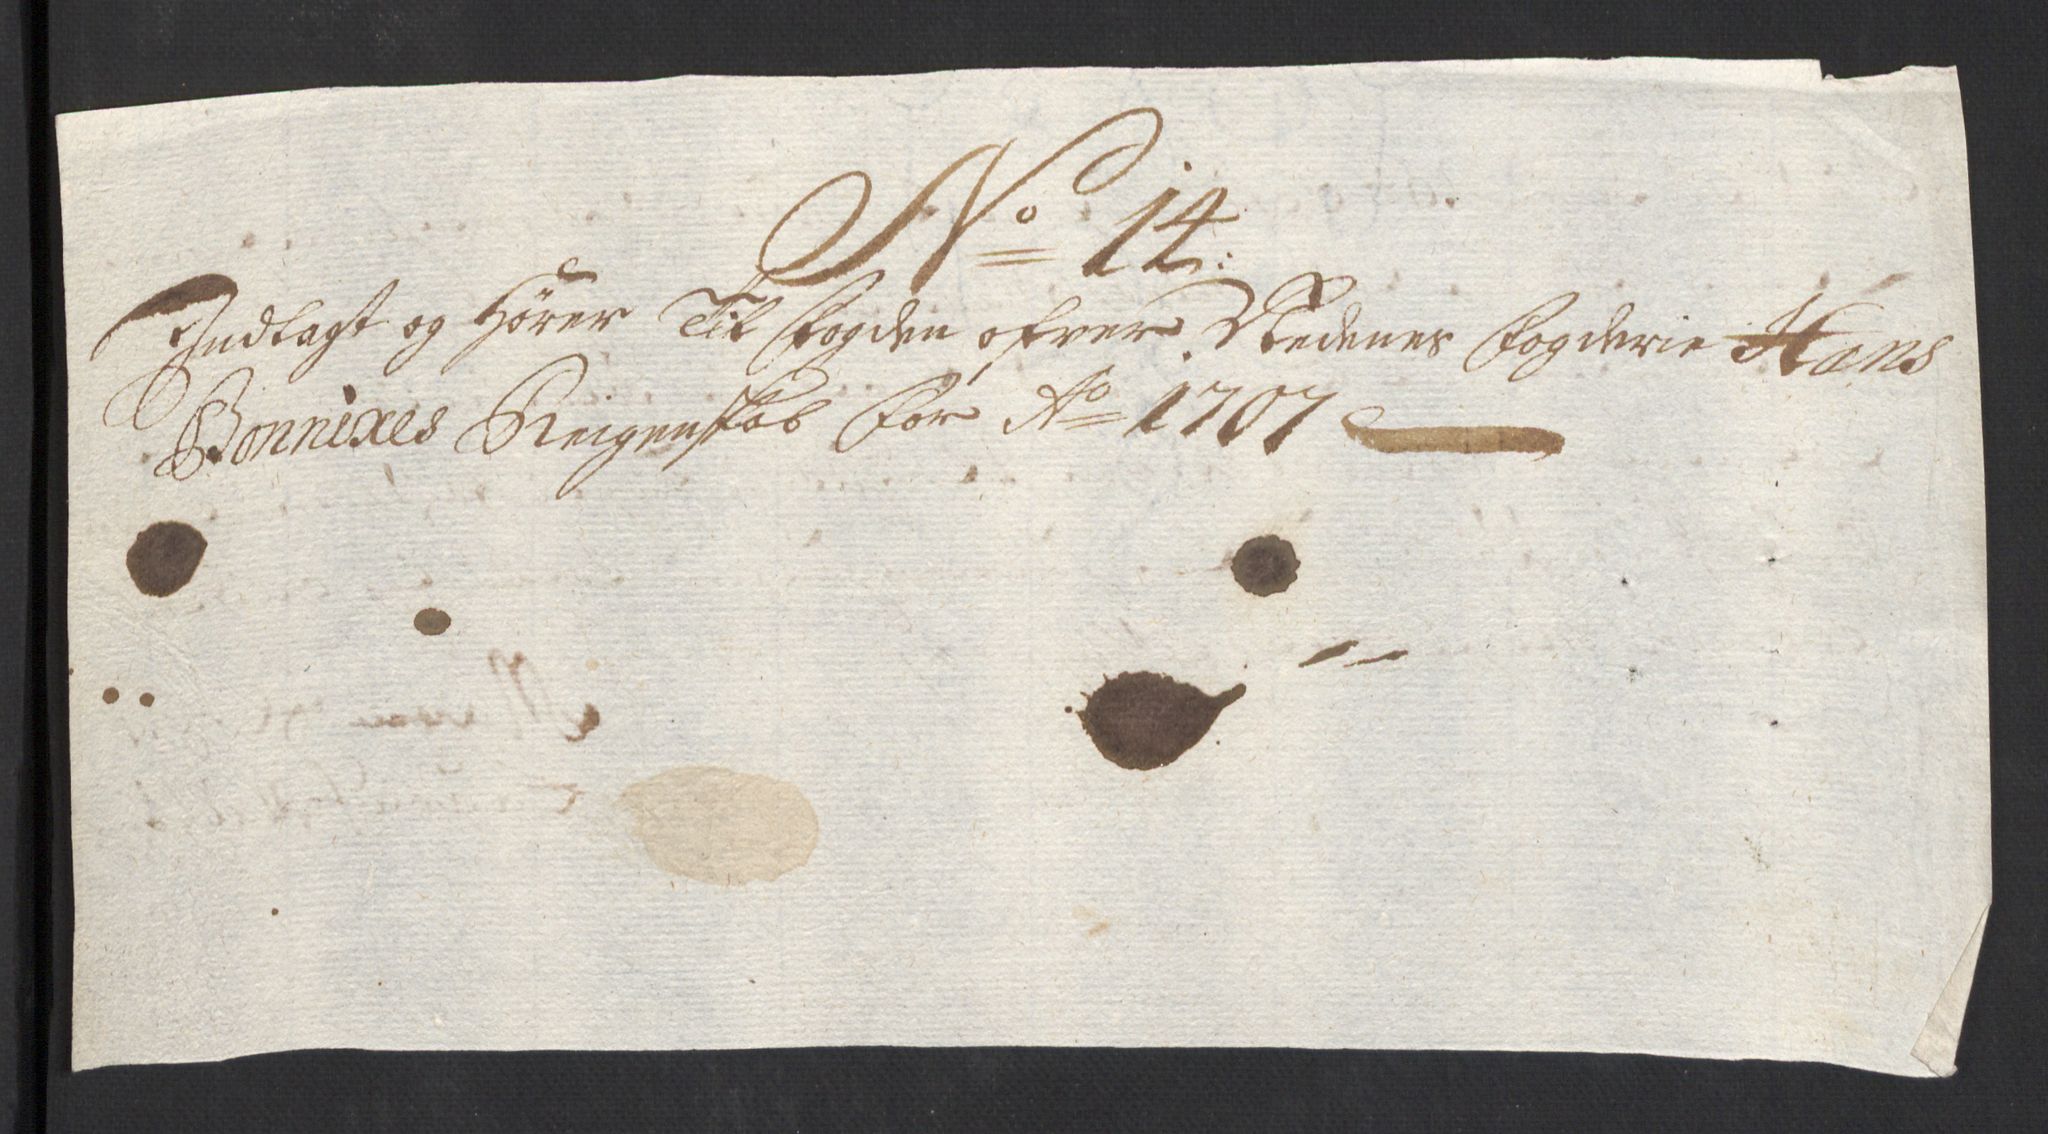 No 14:
Indlagt og Hörer Til fogden ofver Nedenes fogderie Hans
Bonnixes Reigenskab for Ao 1707